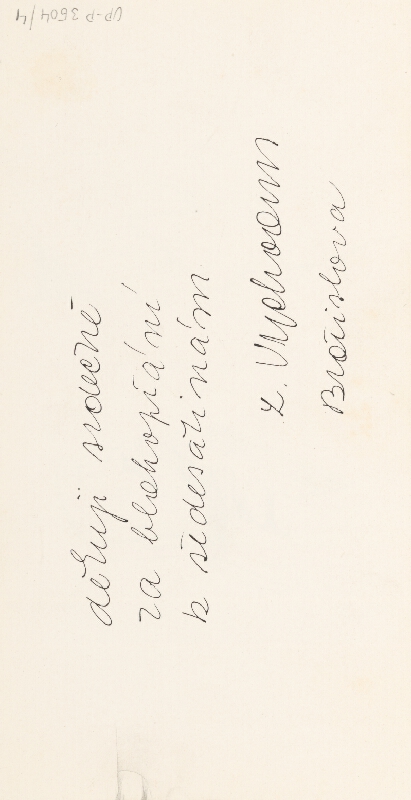 děkuji srdečně
za blahopřání
k šedesátinám
Z.
Bratislava
UP-P 3604/4